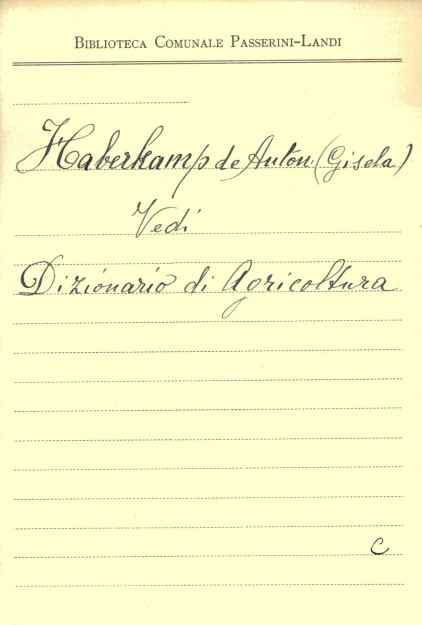 Biblioteca Comunale Passerini-Landi
Haberkamp de Anton (Gisela)
Vedi
Dizionario di Agricoltura
C